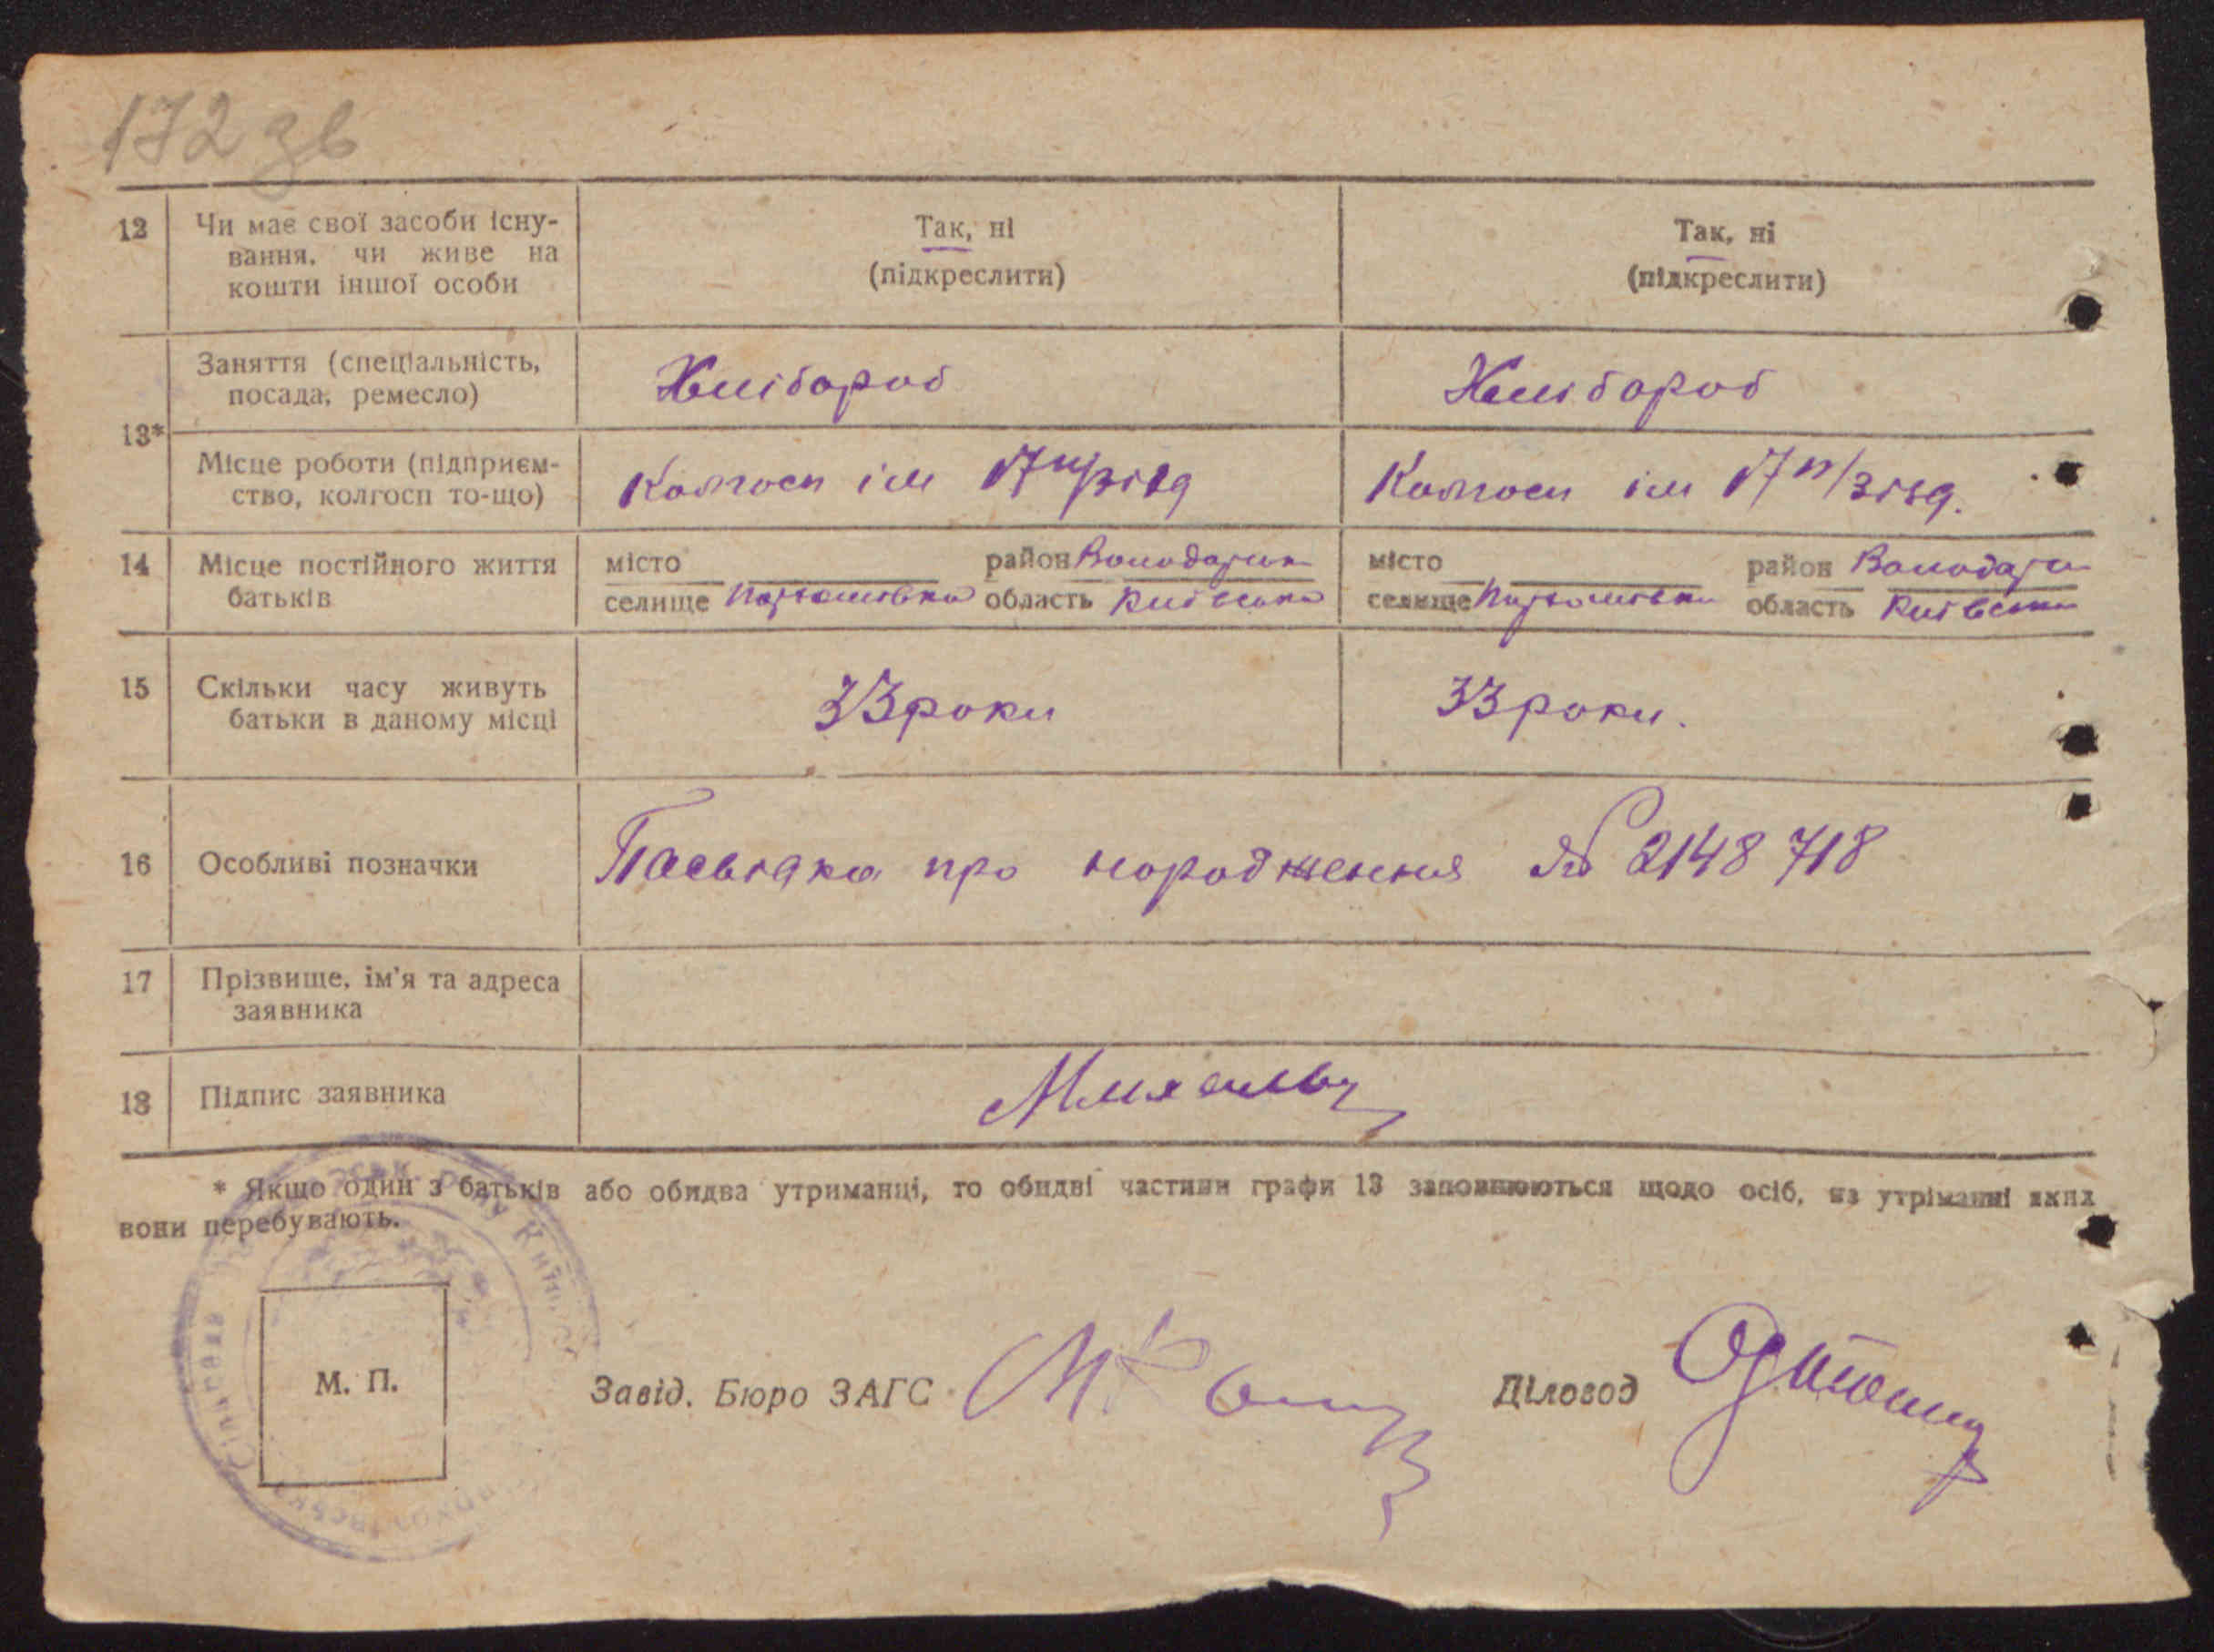 172 зв
12 Чи має свої засоби існу-
вання, чи живе на
кошти іншої особи
Так, ні
(підкреслити)
Так, ні
(підкреслити)
13*
Заняття (спеціальність,
посада, ремесло)
Хлібороб
Хлібороб
Місце роботи (підприєм-
ство, колгосп то-що)
Колгосп ім 17 п/зїзд
Колгосп ім 17 п/зїзд.
14 Місце постійного життя
батьків
місто район Володарськ
селище область Київська
місто район Володарськ
селище область Київська
15 Скільки часу живуть
батьки в даному місці
33 роки
33 роки.
16 Особливі позначки
про народження № 2148718
17 Прізвище, ім'я та адреса
заявника
18 Підпис заявника
* Якщо один з батьків або обидва утриманці, то обидві частини графи 13 заповнюються щодо осіб, на утріманні яких
вони перебувають.
М. П.
Завід. Бюро ЗАГС
Діловод